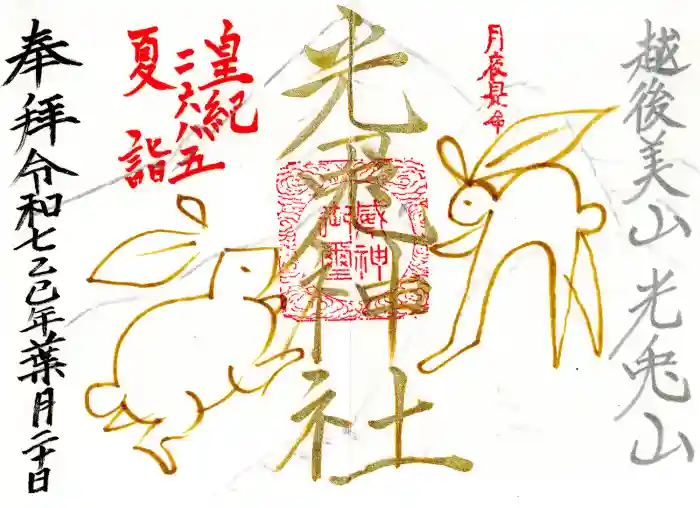 越後美山 光兎山
月夜見命
光兎神社
皇紀
二六八五
夏詣
奉拝令和七乙巳年葉月二十日